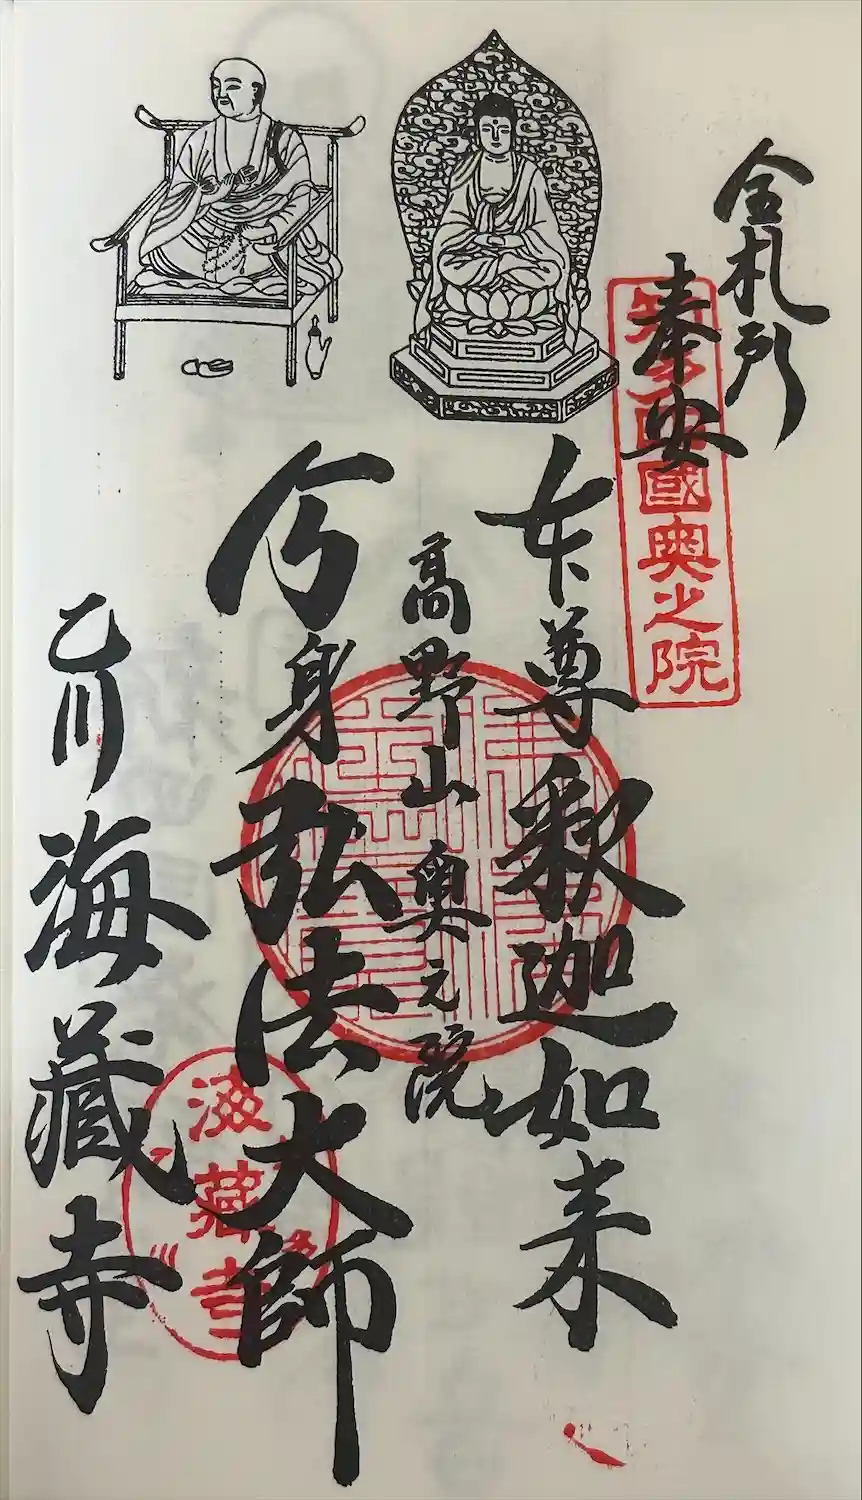 札所
奉安
國奥之院
本尊釈迦如来
高野山奥之院
分身弘法大師
乙川海藏寺
海藏寺